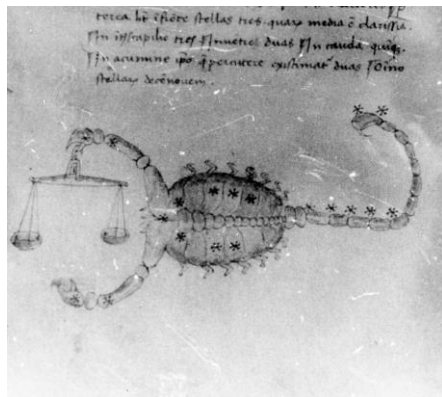 terea ht ifrōte stellas tres. quaꝝ media ē clarissīa.
In itscapilio tres In uētre duas In cauda quīqꝫ.
In acumine ipo q percutere existimatᵉ duas Oīno
stellaꝝ decēnouem.